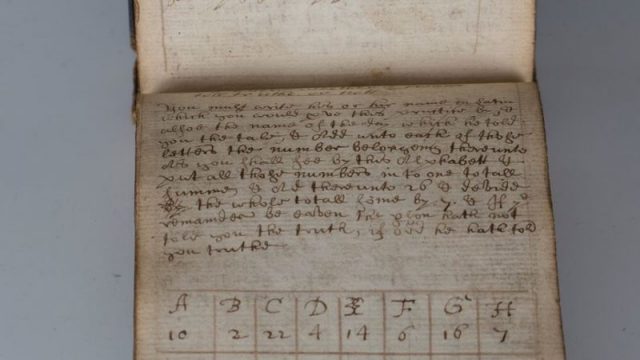 You must write his or her name in Latin
which you would prove this practise by &
allso the name of the day which he told
you the tale, & Add unto each of those
letters the number belonging thereunto
As you shall see by this Alphabett &
put all those numbers in to one totall
summe, & Ad thereunto 26 & devide
the whole totall some by 7. & If ye
remainder be eaven the pson hath not
told you the truth, if odd he hath told
you truthe
A B C D E F G H
10 2 22 4 14 6 16 7